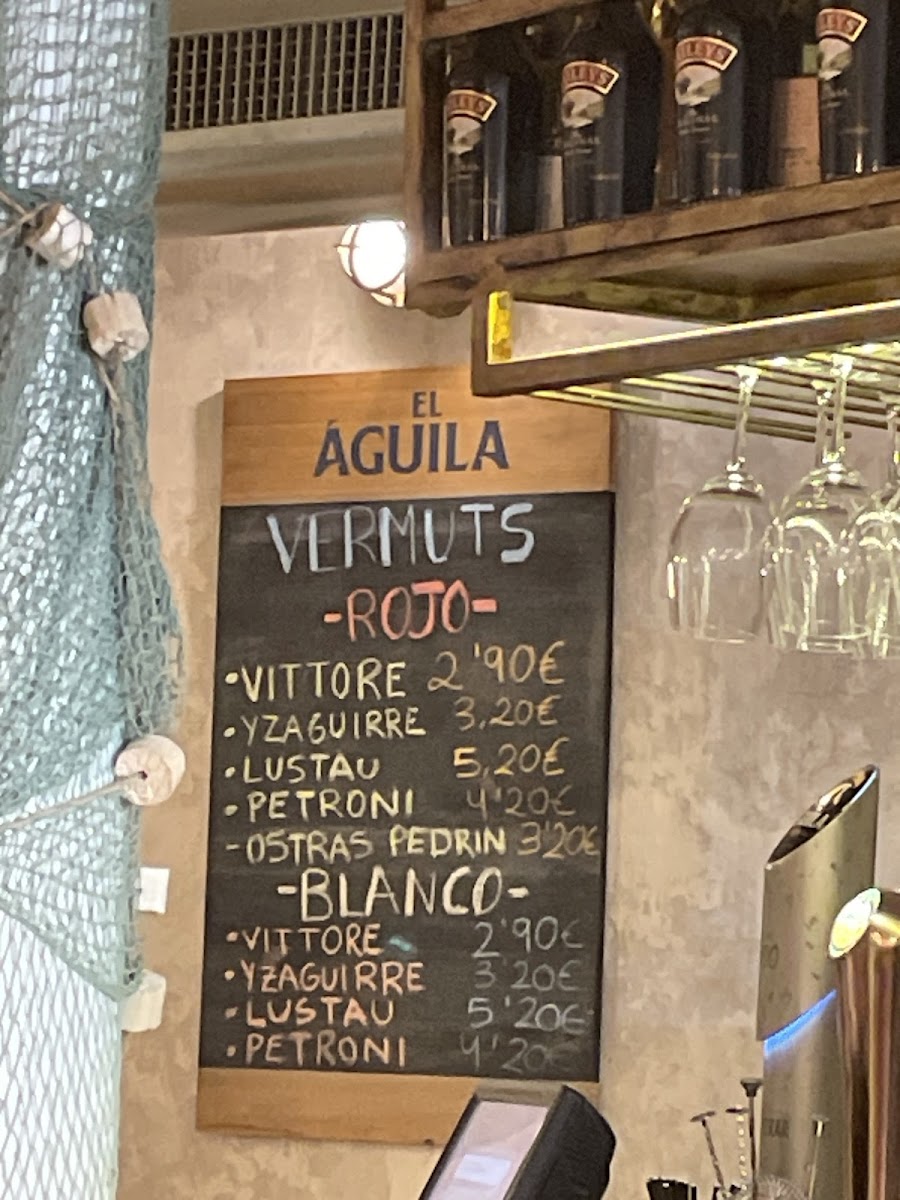 BAILEYS
BAILEYS
BAILEYS
EL
ÁGUILA
VERMUTS
-ROJO-
•VITTORE 2'90€
•YZAGUIRRE 3,20€
•LUSTAU 5,20€
•PETRONI 4'20€
-OSTRAS PEDRIN 3'20€
-BLANCO-
•VITTORE 2'90€
•YZAGUIRRE 3'20€
•LUSTAU 5'20€
•PETRONI 4'20€